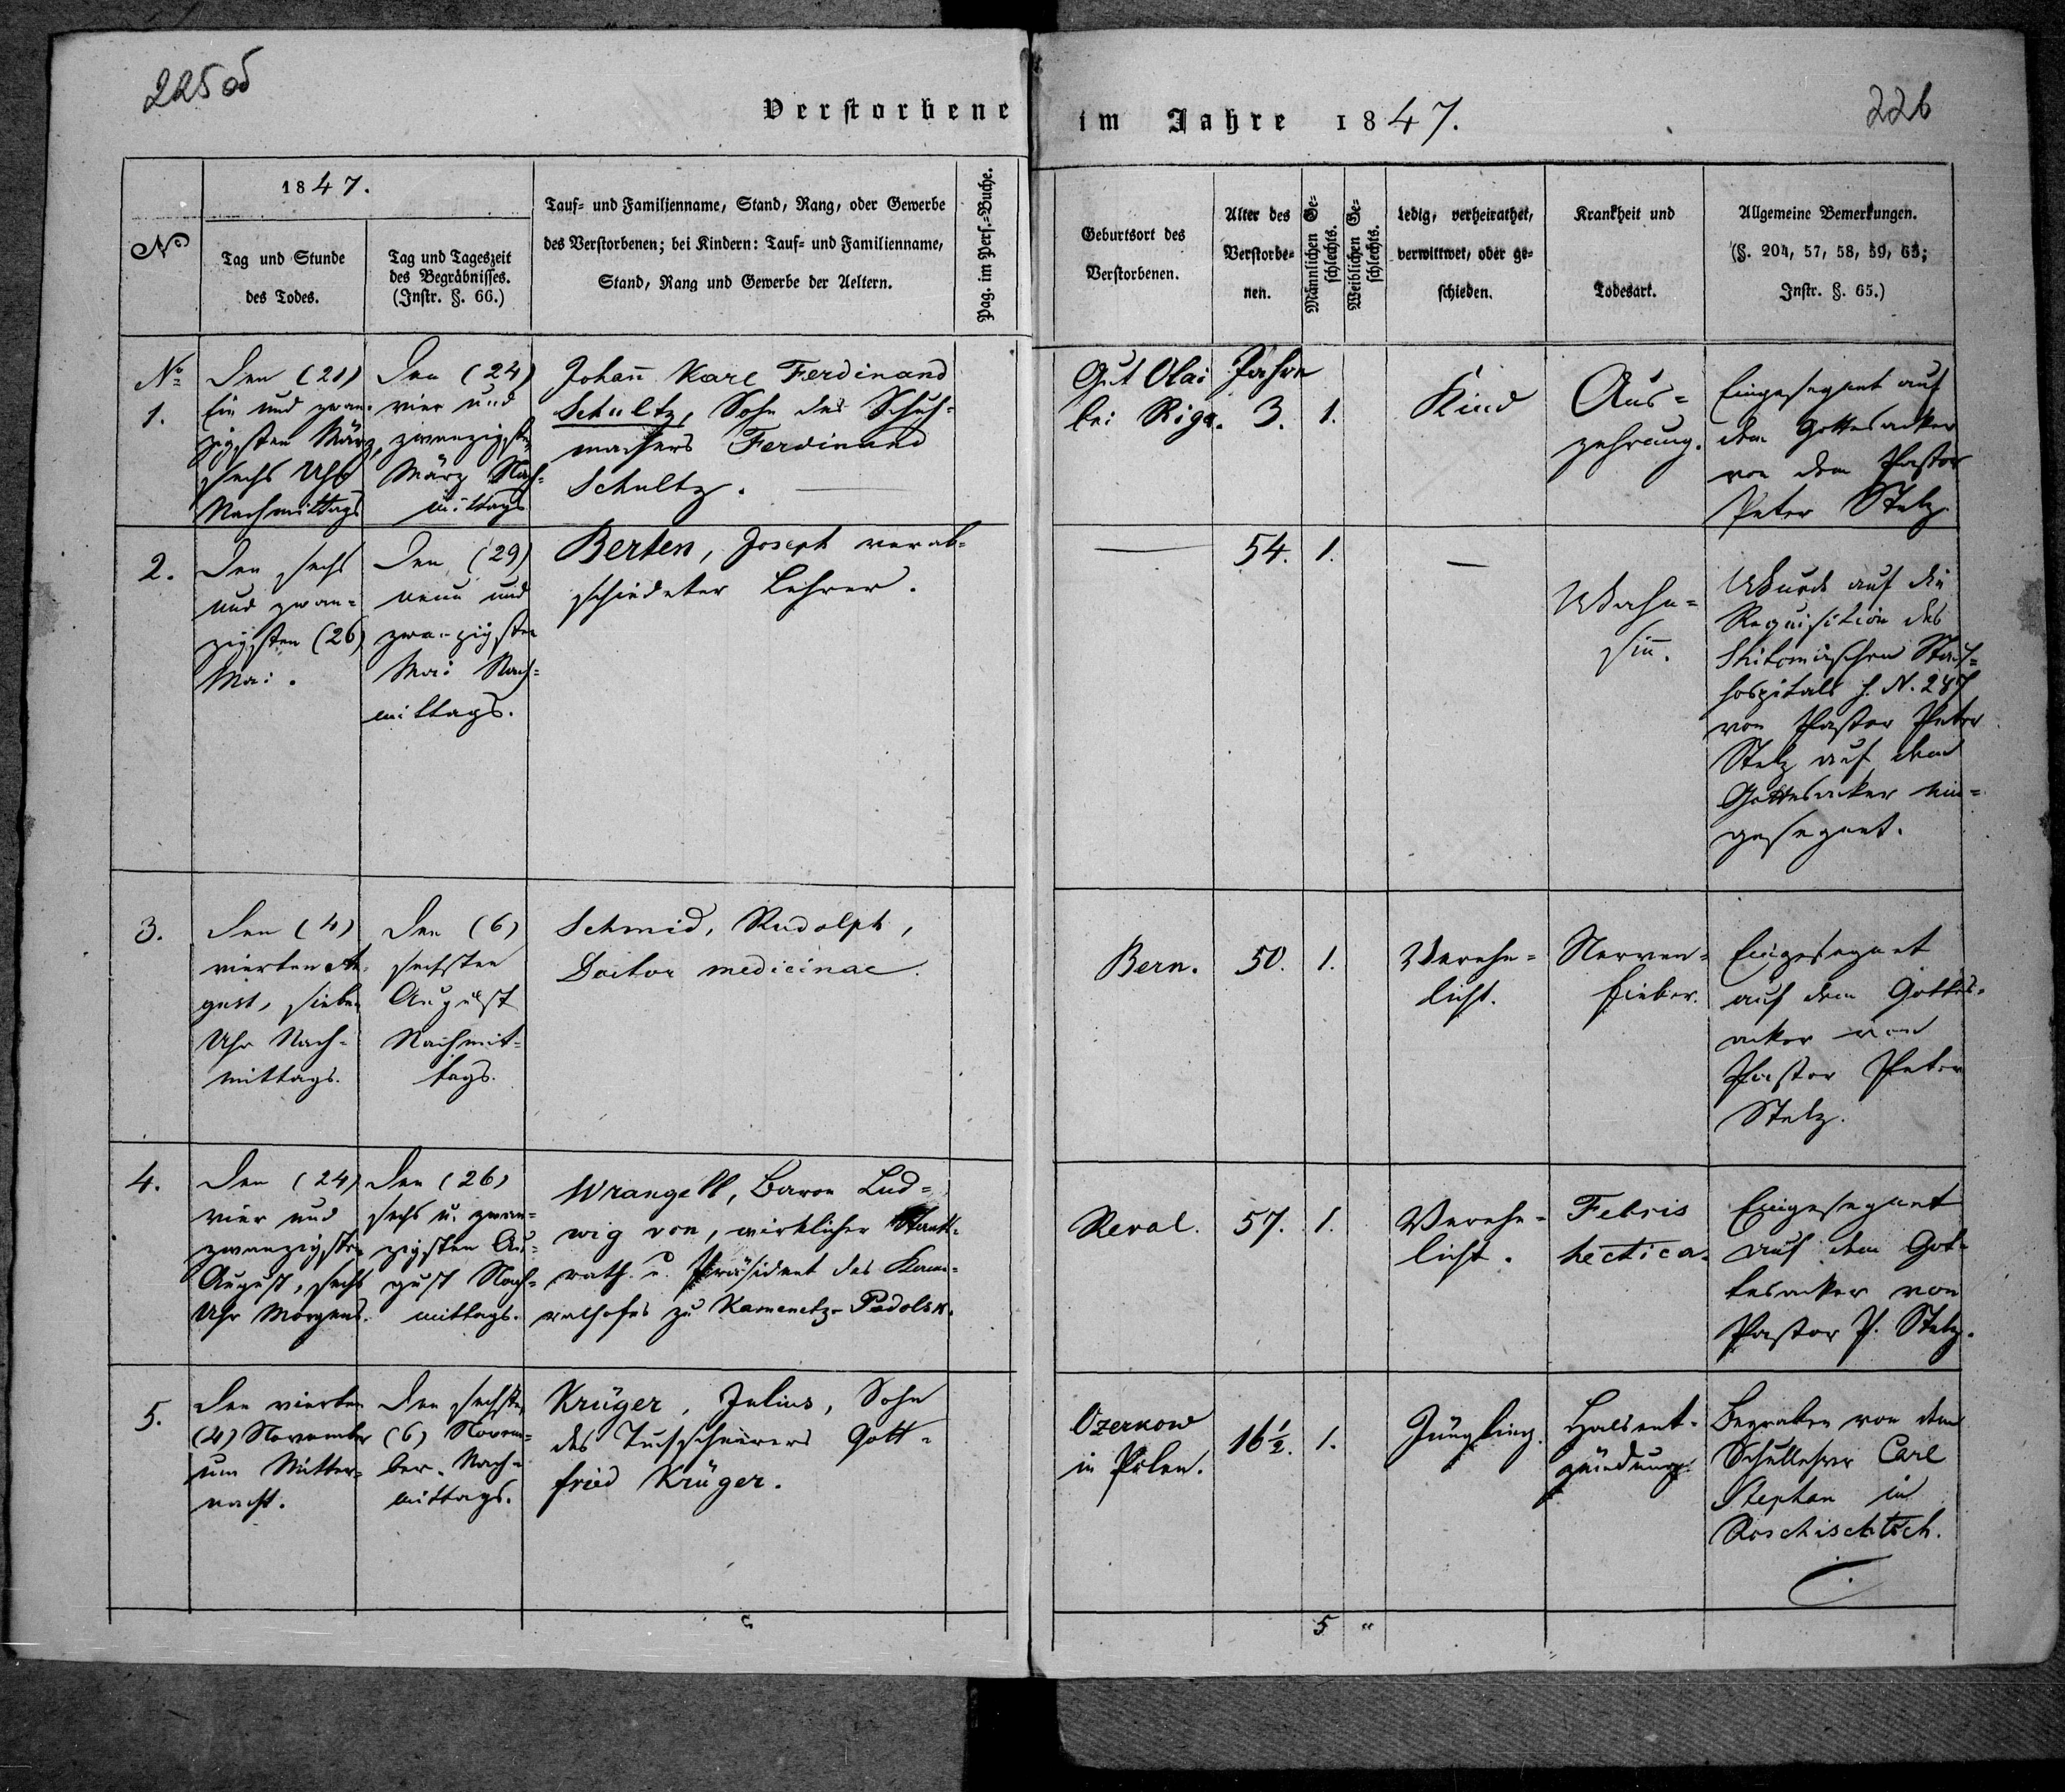 225 об
226
Verstorbene im Jahre 1847.
№
1847.
Tag und Stunde
des Todes.
Tag und Tageszeit
des Begräbnisses.
(Instr. §. 66.)
Tauf= und Familienname, Stand, Rang, oder Gewerbe
des Verstorbenen; bei Kindern: Tauf= und Familienname,
Stand, Rang und Gewerbe der Aeltern.
Pag. im Pers.=Buche.
Geburtsort des
Verstorbenen.
Alter des
Verstorbe=
nen.
Männlichen Ge=
schlechts.
Weiblichen Ge=
schlechts.
Ledig, verheirathet,
verwittwet, oder ge=
schieden.
Krankheit und
Todesart.
Allgemeine Bemerkungen.
(§. 204, 57, 58, 59, 63;
Instr. §. 65.)
№
1.
Den (21)
Ein und zwan=
zigsten März,
sechs Uhr
Nachmittags
Den (24)
vier und
zwanzigsten
März Nach=
mittags
Johañ Karl Ferdinand
Schultz, Sohn des Schuh=
machers Ferdinand
Schultz.
Gut Olai
bei Riga.
Jahre
3.
1.
Kind
Aus=
zehrung.
Eingesegnet auf
dem Gottesacker
von dem Pastor
Peter Stelz
2.
Den sechs
und zwan=
zigsten (26)
Mai.
Den (29)
neun und
zwanzigsten
Mai Nach=
mittags.
Berten, Joseph verab=
schiedeter Lehrer.
—
54.
1.
—
Wahn=
siñ.
Wurde auf die
Requisition des
Shitomirschen Stadt=
hospitals s. N. 287
von Pastor Peter
Stelz auf dem
Gottesacker ein=
gesegnet.
3.
Den (4)
vierten Au=
gust, sieben
Uhr Nach=
mittags.
Den (6)
sechsten
August
Nachmit=
tags.
Schmid, Rudolph,
Doctor medicinae.
Bern.
50.
1.
Verehe=
licht.
Nerven=
fieber.
Eingesegnet
auf dem Gottes=
acker von
Pastor Peter
Stelz.
4.
Den (24)
vier und
zwanzigsten
August, sechs
Uhr Morgens.
Den (26)
sechs u. zwan=
zigsten Au=
gust Nach=
mittags.
Wrangell, Baron Lud=
wig von, wirklicher Staats=
rath u. Präsident des Kame=
ralhofes zu Kamenetz-Podolsk.
Reval.
57.
1.
Verehe=
licht.
Febris
hectica.
Eingesegnet
auf dem Got=
tesacker von
Pastor P. Stelz.
5.
Den vierten
(4) November
um Mitter=
nacht.
Den sechsten
(6) Novem=
ber Nach=
mittags.
Krüger, Julius, Sohn
des Tuchscheerers Gott=
fried Krüger.
Ozerkow
in Polen.
16½.
1.
Jüngling.
Halsent=
zündung.
Begraben von dem
Schullehrer Carl
Stephan in
Roschischtsch.
5 "